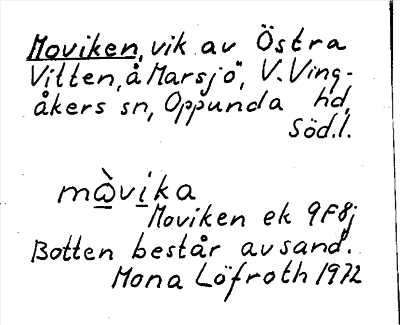 Moviken, vik av Östra
Vitten, å Marsjö, V. Ving-
åkers sn, Oppunda hd,
Söd.l.
mὼvika
Moviken ek 9F8j
Botten består av sand.
Mona Löfroth 1972